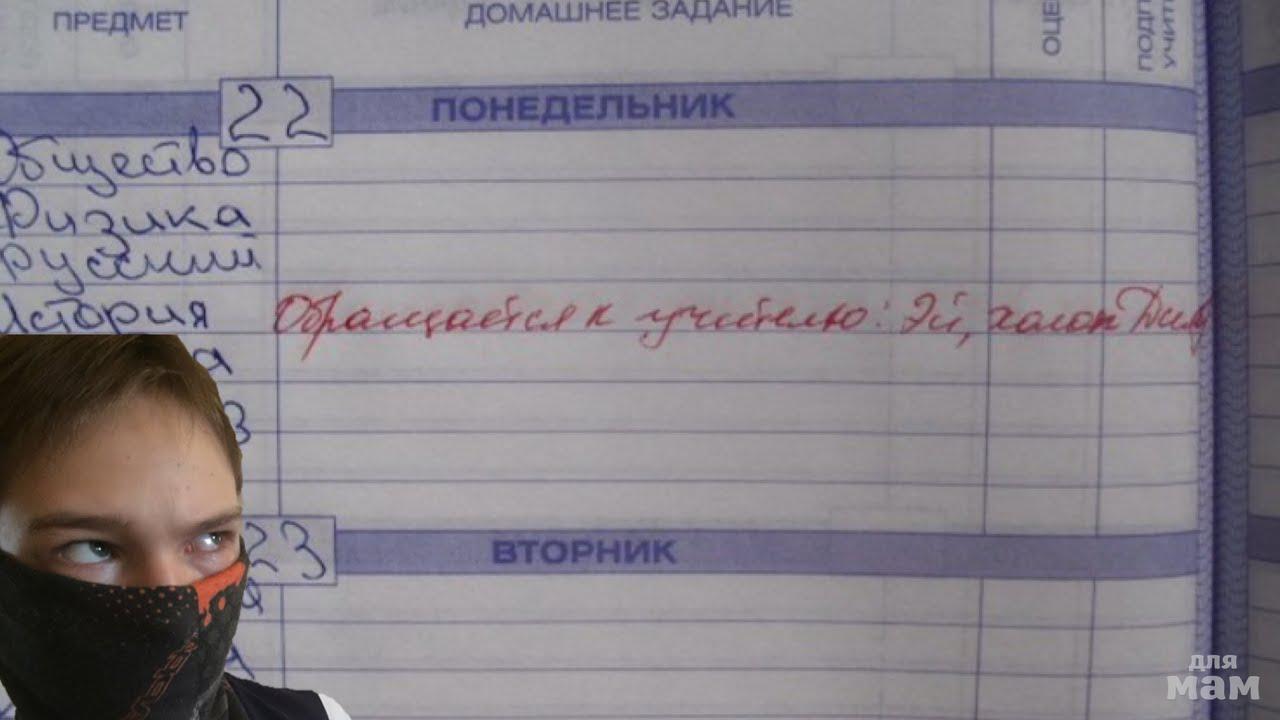 ПРЕДМЕТ
ДОМАШНЕЕ ЗАДАНИЕ
22
ПОНЕДЕЛЬНИК
Общество
Физика
Русский
История
Обращается к учителю: Эй, холоп
23
ВТОРНИК
для
мам